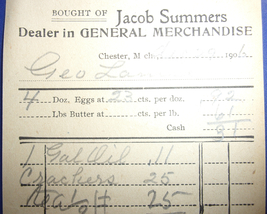 BOUGHT OF Jacob Summers
Dealer in GENERAL MERCHANDISE
Chester, Mich 190
Geo
4 Doz. Eggs at 23 cts. per doz. 92
Lbs Butter at cts. per lb.
Cash
1 Gal Oil 11
Crackers 25
Meat 25